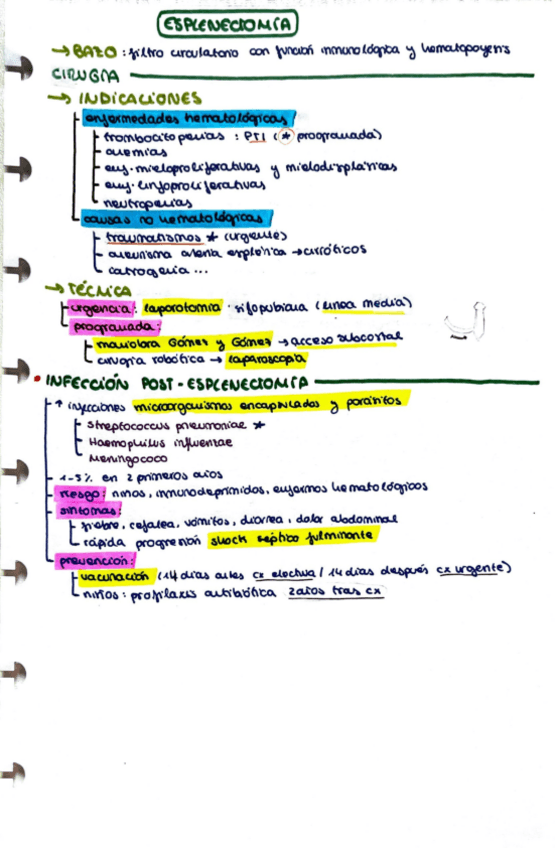 ESPLENECTOMÍA
→ BAZO: filtro circulatorio con función inmunológica y hematopoyesis
CIRUGÍA
→ INDICACIONES
enfermedades hematológicas
trombocitopenias: PTI (* programada)
anemias
enf. mieloproliferativas y mielodisplásicas
enf. linfoproliferativas
neutropenias
causas no hematológicas
traumatismos * (urgente)
aneurisma arteria esplénica → cirróticos
iatrogenia ...
→ TÉCNICA
urgencia: laparotomia xifopubiana (linea media)
programada:
maniobra Gómez y Gómez → acceso subcostal
cirugía robótica → laparoscopia
• INFECCIÓN POST-ESPLENECTOMÍA
↑ infecciones microorganismos encapsulados y parásitos
Streptococcus pneumoniae *
Haemophilus influenzae
Meningococo
1-5% en 2 primeros años
riesgo: niños, inmunodeprimidos, enfermos hematológicos
síntomas:
fiebre, cefalea, vómitos, diarrea, dolor abdominal
rápida progresión shock séptico fulminante
prevención:
vacunación (14 días antes cx electiva / 14 días después cx urgente)
niños: profilaxis antibiótica 2 años tras cx